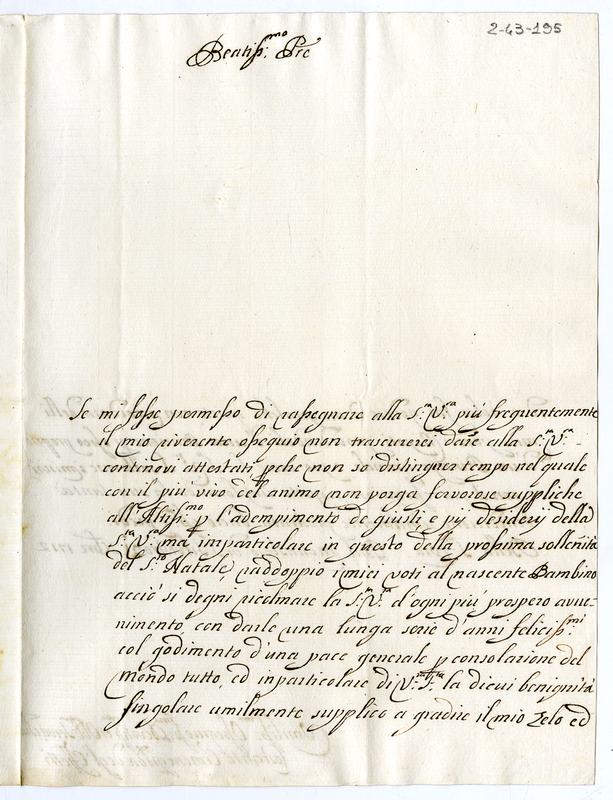 2-43-195
Beatiss:mo Pre
Se mi fosse permesso di rassegnare alla S:tà V:ra più frequentemente
il mio riverente ossequio non trascurerei dare alla S:tà V:ra
continovi attestati, pche non so distinguer tempo nel quale
con il più vivo del animo non porga fervorose suppliche
all'Altiss:mo p l'adempimento de giusti e pij desiderij della
S:tà V:ra ma imparticolare in questo della prossima sollenità
del S:to Natale, raddoppio i miei voti al nascente Bambino
acciò si degni ricolmare la S:tà V:ra d'ogni più prospero avue-
nimento, con darle una lunga serie d'anni feliciss:mi
col godimento d'una pace generale p consolazione del
mondo tutto, ed inparticolare di V:ra S:tà la dicui benignità
singolare umilmente supplico a gradire il mio zelo ed